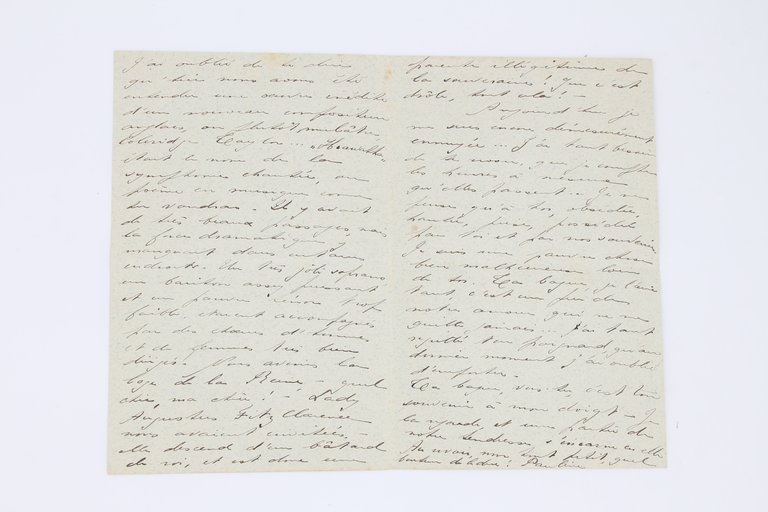 J'ai oublié de te dire
qu'hier nous avons été
entendre une œuvre inédite
d'un nouveau compositeur
anglais, ou plutôt mulâtre
Coleridge Taylor... "Hiawatha"
était le nom de la
symphonie chantée, ou
poème en musique comme
tu voudras. Il y avait
de très beaux passages mais
la force dramatique
manquait dans certains
endroits. Un très joli soprano
un baryton assez puissant
et un pauvre ténor trop
faible, étaient accompagnés
par des chœurs d'hommes
et de femmes très bien
dirigés. Nous avions la
loge de la Reine, - quel
chic, ma chère! - Lady
Augustus Fitz Clarence
nous avaient invitées, -
elle descend d'un bâtard
de roi, et est donc une
parente illégitime de
la souveraine! Que c'est
drôle, tout cela! -
Aujourd'hui je
me suis encore démesurément
ennuyée... J'ai tant besoin
de te revoir, que je compte
les heures à mesure
qu'elles passent. - Je ne
pense qu'à toi, obsédée,
hantée, prise, possédée
par toi et par nos souvenirs
Je suis une pauvre chose
bien malheureuse loin
de toi. Ta bague, je l'aime
tant, c'est un peu de
notre amour qui ne me
quitte jamais... J'ai tant
regretté ton poignard qu'au
dernier moment j'ai oublié
d'emporter.
Ta bague, vois-tu, c'est ton
souvenir à mon doigt - Je
la regarde et une partie de
notre tendresse s'incarne en elle
Au revoir, mon tout petit, quel
bonheur de te dire! Pauline